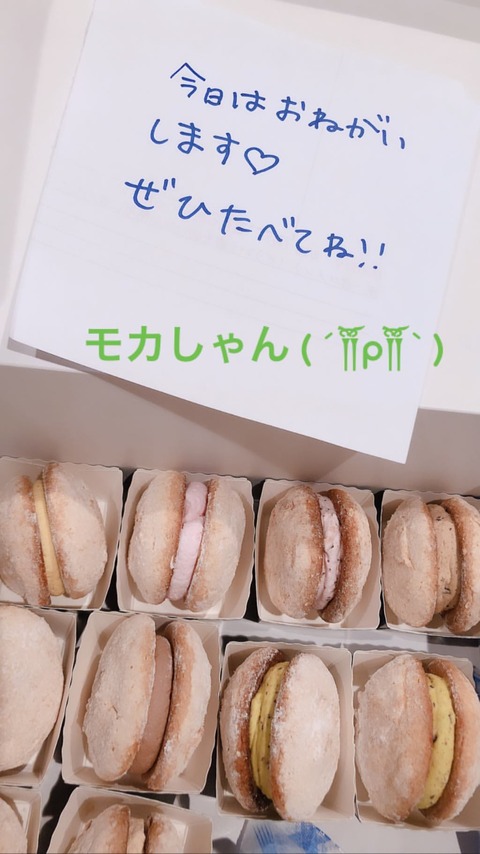 今日はおねがい
します♡
ぜひたべてね!!
モカしゃん( ´༎ຶρ༎ຶ` )